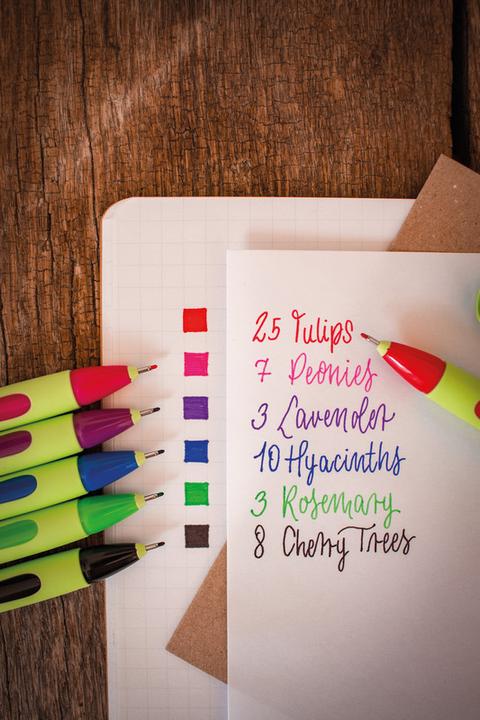 25 Tulips
7 Peonies
3 Lavender
10 Hyacinths
3 Rosemary
8 Cherry Trees